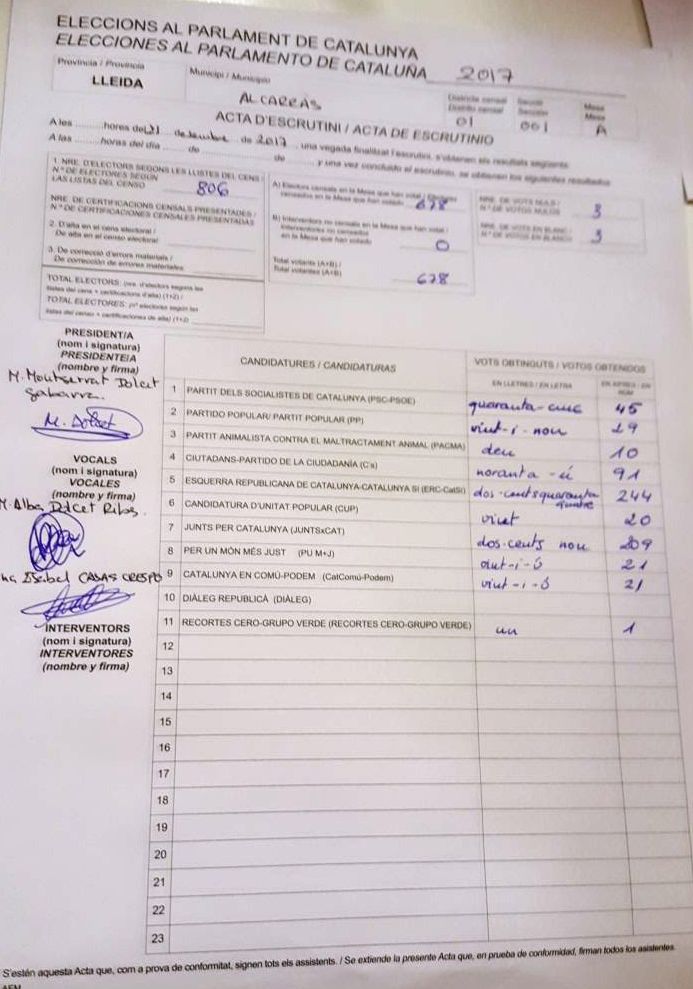 ELECCIONS AL PARLAMENT DE CATALUNYA
ELECCIONES AL PARLAMENTO DE CATALUÑA 2017
Provincia / Provincia
LLEIDA
Municipi / Municipio
ALCARRÀS
Districte censal
Distrito censal
01
Secció
Sección
001
Mesa
Mesa
A
ACTA D'ESCRUTINI / ACTA DE ESCRUTINIO
A les ..........hores del 21 de desembre de 2017 , una vegada finalitzat l'escrutini, s'obtenen els resultats següents
A las ..........horas del día ...... de .................. de ............ y una vez concluido el escrutinio, se obtienen los siguientes resultados
1. NRE. D'ELECTORS SEGONS LES LLISTES DEL CENS /
N.º DE ELECTORES SEGÚN
LAS LISTAS DEL CENSO 806
NRE. DE CERTIFICACIONS CENSALS PRESENTADES /
N.º DE CERTIFICACIONES CENSALES PRESENTADAS
2. D'alta en el cens electoral /
De alta en el censo electoral
3. De correcció d'errors materials /
De corrección de errores materiales
TOTAL ELECTORS: (nre. d'electors segons les
llistes del cens + certificacions d'alta) (1+2) /
TOTAL ELECTORES: (nº electores según las
listas del censo + certificaciones de alta) (1+2)
A) Electors censats en la Mesa que han votat / Electores
censados en la Mesa que han votado 678
B) Interventors no censats en la Mesa que han votat /
Interventores no censados
en la Mesa que han votado 0
Total votants (A+B) /
Total votantes (A+B) 678
NRE. DE VOTS NULS /
N.º DE VOTOS NULOS 3
NRE. DE VOTS EN BLANC /
N.º DE VOTOS EN BLANCO 3
PRESIDENT/A
(nom i signatura)
PRESIDENTE/A
(nombre y firma)
M. Montserrat Dolcet
Gabarra.
M. Dolcet
VOCALS
(nom i signatura)
VOCALES
(nombre y firma)
M. Alba Dolcet Ribes.
Isabel CASAS CRESPO
INTERVENTORS
(nom i signatura)
INTERVENTORES
(nombre y firma)
CANDIDATURES / CANDIDATURAS
VOTS OBTINGUTS / VOTOS OBTENIDOS
EN LLETRES / EN LETRA
EN XIFRES / EN NÚM
1 PARTIT DELS SOCIALISTES DE CATALUNYA (PSC-PSOE) quaranta-cinc 45
2 PARTIDO POPULAR/ PARTIT POPULAR (PP) vint-i-nou 29
3 PARTIT ANIMALISTA CONTRA EL MALTRACTAMENT ANIMAL (PACMA) deu 10
4 CIUTADANS-PARTIDO DE LA CIUDADANÍA (C's) noranta-ú 91
5 ESQUERRA REPUBLICANA DE CATALUNYA-CATALUNYA SÍ (ERC-CatSí) dos-cents quaranta quatre 244
6 CANDIDATURA D'UNITAT POPULAR (CUP) vint 20
7 JUNTS PER CATALUNYA (JUNTSxCAT) dos-cents nou 209
8 PER UN MÓN MÉS JUST (PU M+J) vint-i-ú 21
9 CATALUNYA EN COMÚ-PODEM (CatComú-Podem) vint-i-ú 21
10 DIÀLEG REPUBLICÀ (DIÀLEG)
11 RECORTES CERO-GRUPO VERDE (RECORTES CERO-GRUPO VERDE) un 1
12
13
14
15
16
17
18
19
20
21
22
23
S'estén aquesta Acta que, com a prova de conformitat, signen tots els assistents. / Se extiende la presente Acta que, en prueba de conformidad, firman todos los asistentes.